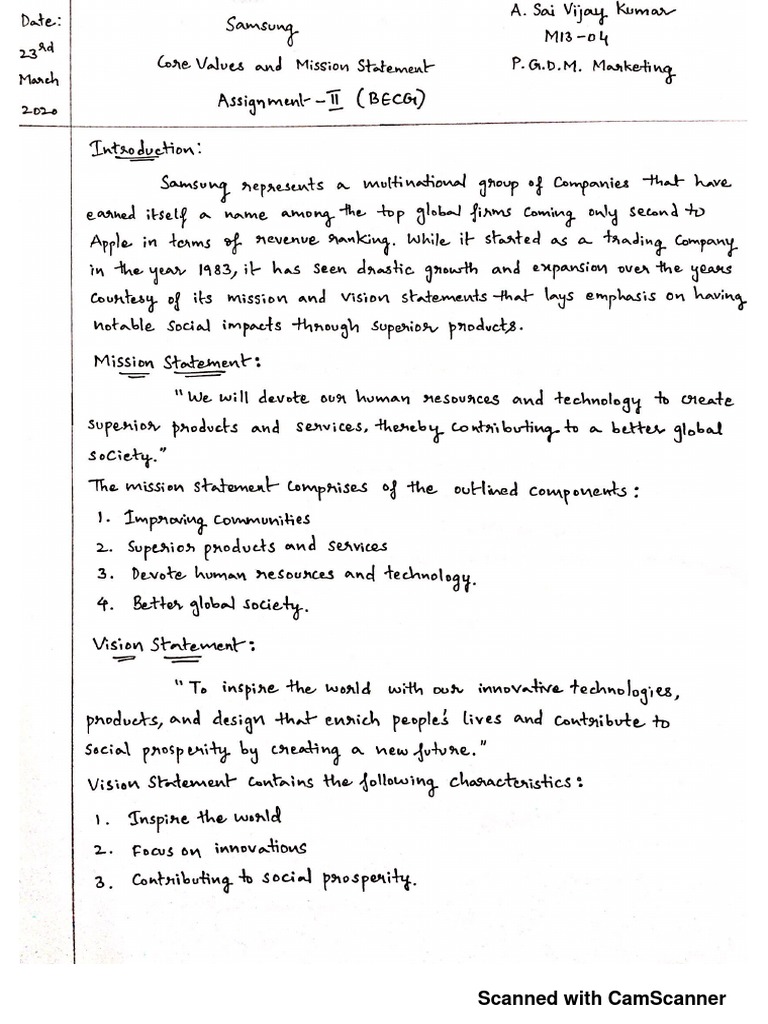 Date:
23rd
March
2020
Samsung
Core Values and Mission Statement
Assignment - II (BECG)
A. Sai Vijay Kumar
M13-04
P.G.D.M. Marketing
Introduction:
Samsung represents a multinational group of Companies that have
earned itself a name among the top global firms coming only second to
Apple in terms of revenue ranking. While it started as a trading Company
in the year 1983, it has seen drastic growth and expansion over the years
Courtesy of its mission and vision statements that lays emphasis on having
notable social impacts through superior products.
Mission Statement:
"We will devote our human resources and technology to create
superior products and services, thereby contributing to a better global
society."
The mission statement comprises of the outlined components:
1. Improving Communities
2. Superior products and services
3. Devote human resources and technology.
4. Better global society.
Vision Statement:
"To inspire the world with our innovative technologies,
products, and design that enrich people's lives and contribute to
social prosperity by creating a new future."
Vision Statement contains the following characteristics:
1. Inspire the world
2. Focus on innovations
3. Contributing to social prosperity.
Scanned with CamScanner